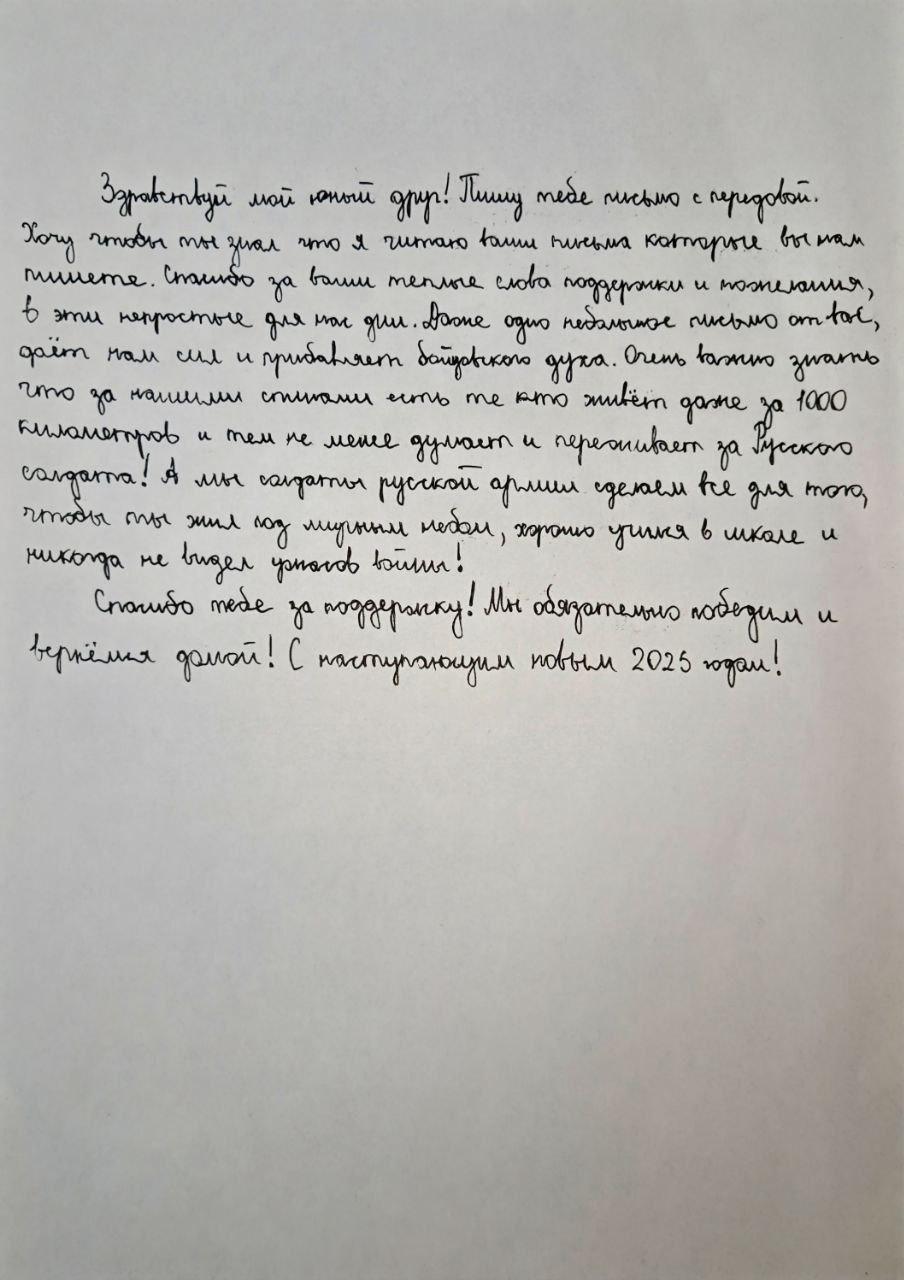 Здравствуй мой юный друг! Пишу тебе письмо с передовой.
Хочу чтобы ты знал что я читаю ваши письма которые вы нам
пишете. Спасибо за ваши теплые слова поддержки и пожелания,
в эти непростые для нас дни. Даже одно небольшое письмо от вас,
даёт нам сил и прибавляет бойцовского духа. Очень важно знать
что за нашими спинами есть те кто живёт даже за 1000
километров и тем не менее думает и переживает за Русского
солдата! А мы солдаты русской армии сделаем все для того,
чтобы ты жил под мирным небом, хорошо учился в школе и
никогда не видел ужасов войны!
Спасибо тебе за поддержку! Мы обязательно победим и
вернёмся домой! С наступающим новым 2025 годом!